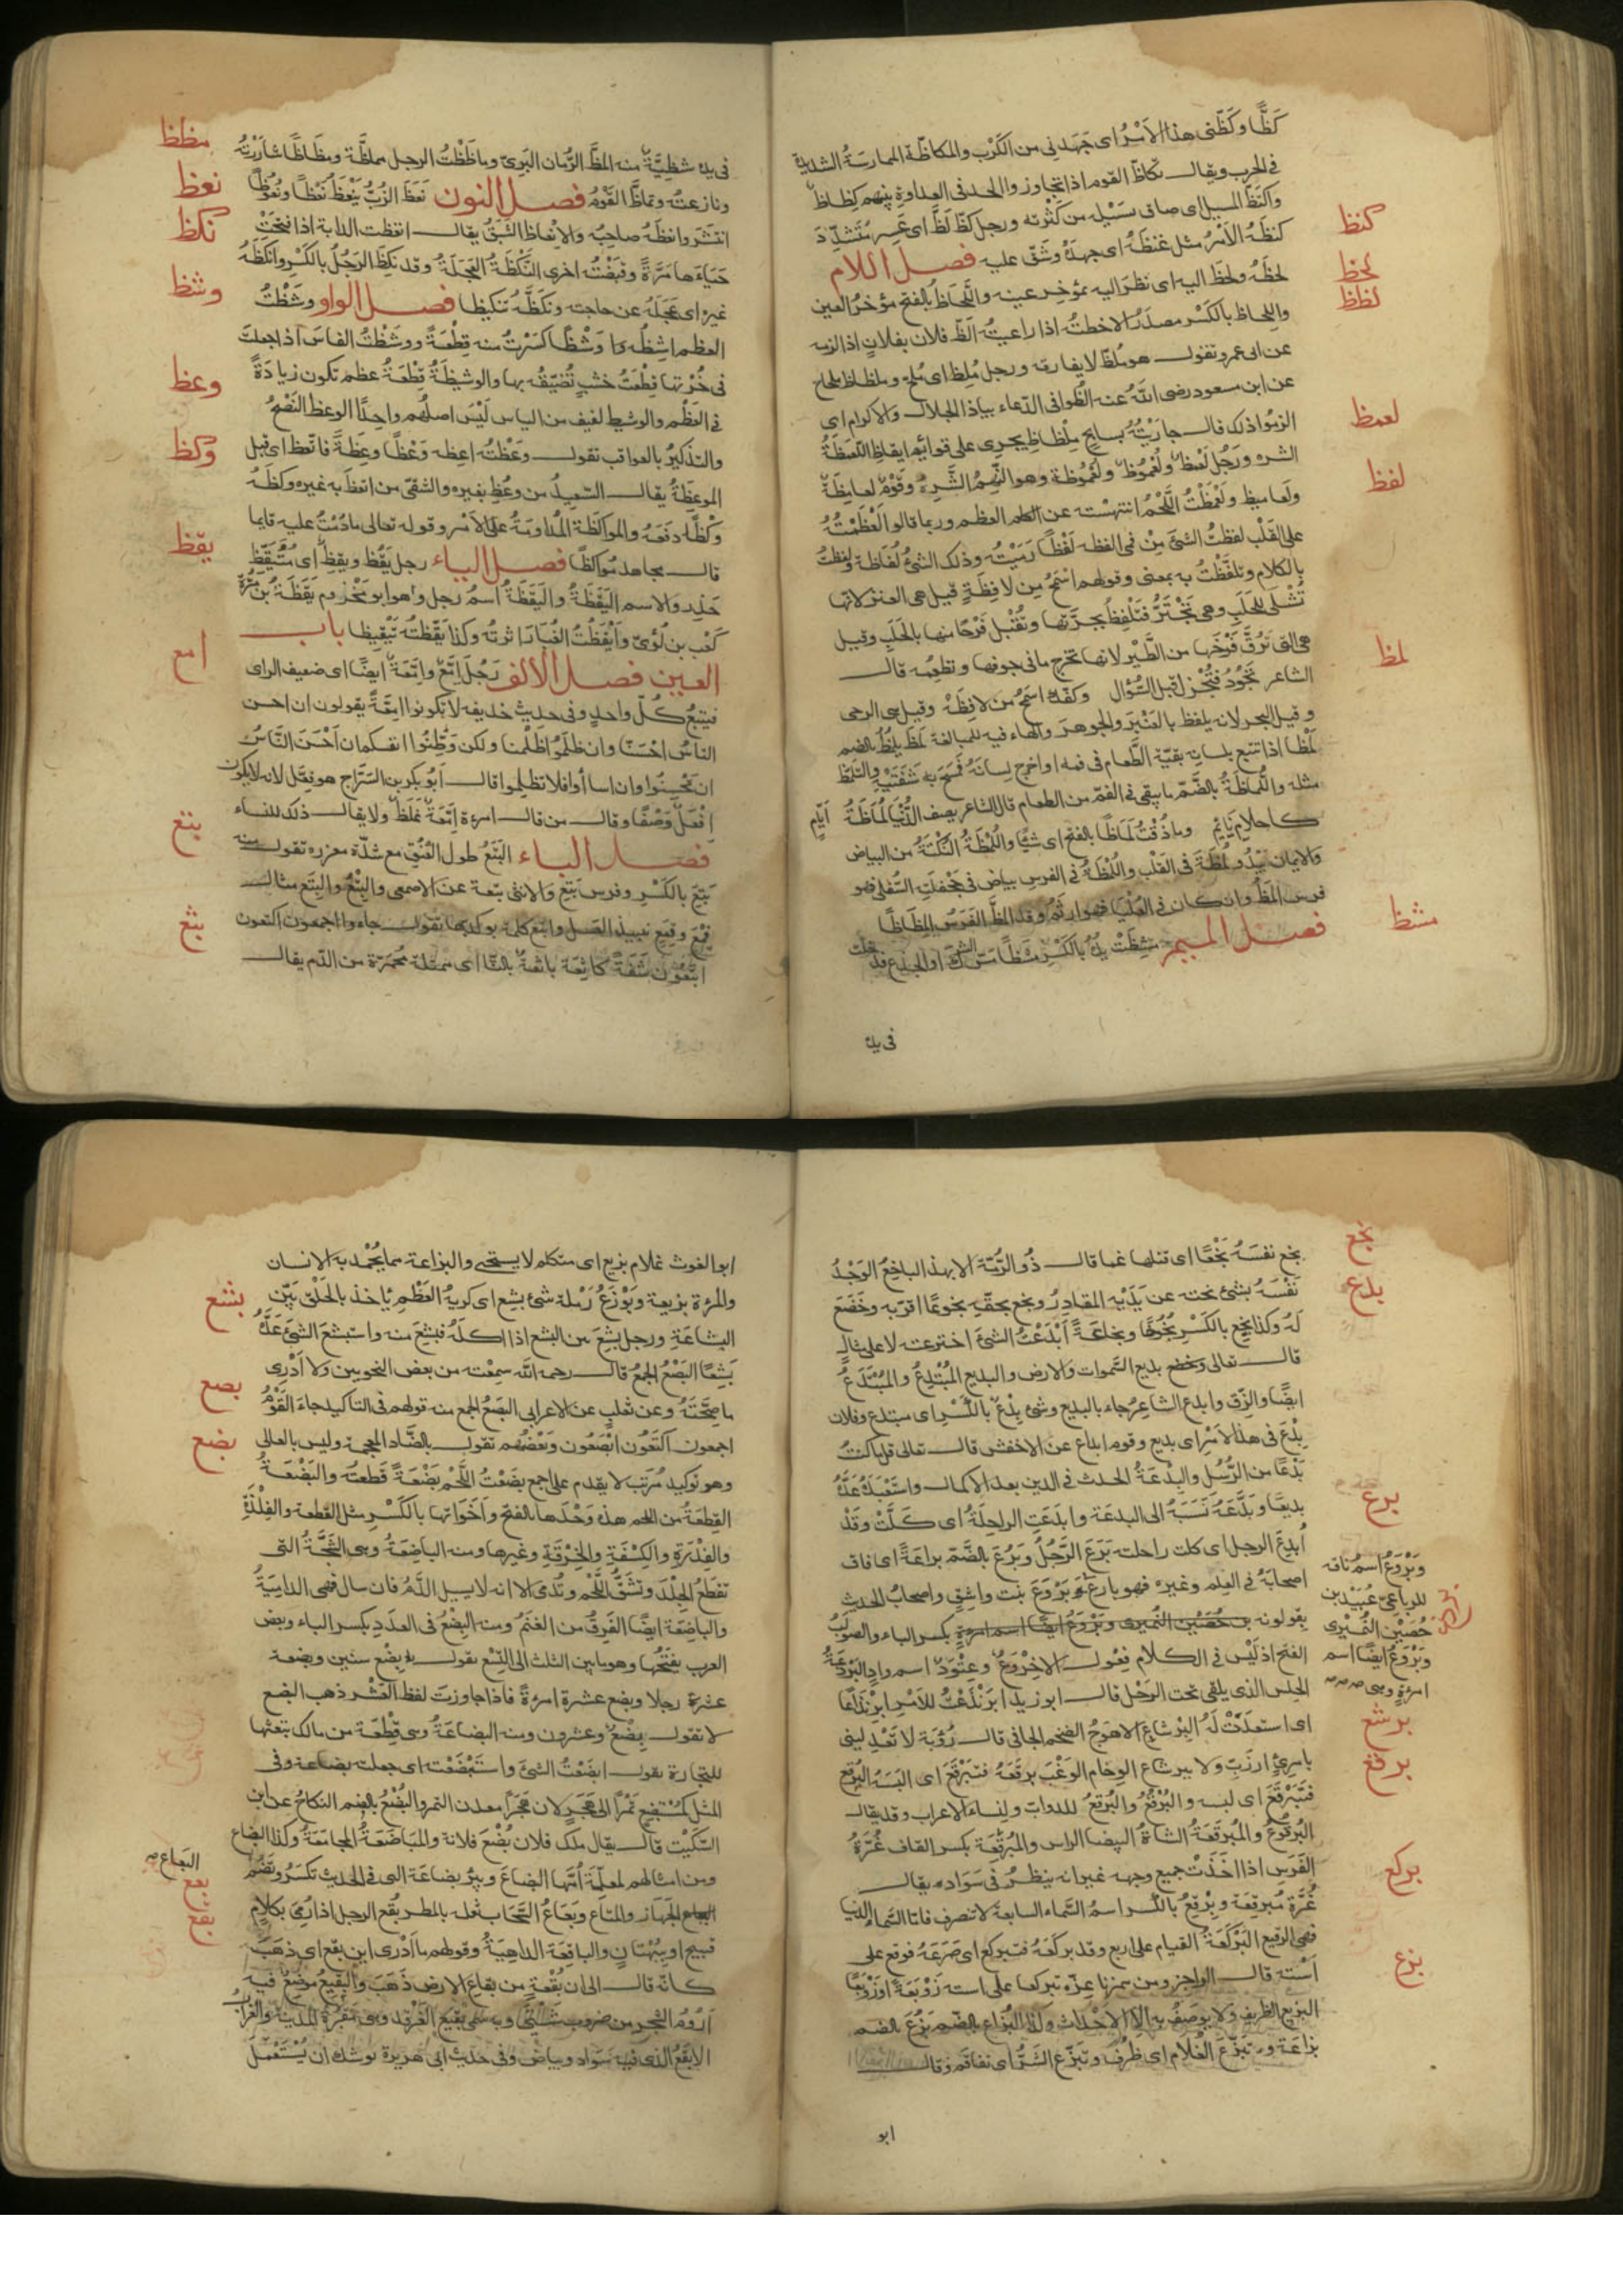 كَظًّا وكَظّنى هذا الاَمْرُ اى جَهَدنى من الكَرْب والمكاظّة الممارسَةُ الشديدة
فى الحرب ويقال تكاظّ القوم اذا تجاوزوا الحد فى العداوة بينهم كِظاظ
واكتظّ المسيل اى ضاق بسَيْله من كثْرته ورجل كَظّ لَظّ اى عَسِر مُتَشدِّد
كنظ
كنظهُ الاَمْرُ مثل غنظَهُ اى جهدهُ وشَقّ عليه فصل اللام
لحظ
لحظَهُ ولحظَ اليه اى نظر اليه بمؤخِر عينه واللَّحاظ بالفتح مؤخرُ العين
لظظ
واللِحاظ بالكَسْر مصدَرُ لاحظتُه اذا راعيتُه الظّ فلان بفلانٍ اذا لزمه
عن ابى عمرو وتقول هو مُلظّ لا يفارقه ورجل مُلِظ اى مُلحّ وملظاظ ملحاح
عن ابن مسعود رضى الله عنه الظّوا فى الدّعاء بياذا الجلال والاكرام اى
لعمظ
الزمُوا ذلك قال جارَيْتُه بسابحٍ مِلْظاظ يجرى على قوائم ايقاظ اللّعمَظَةُ
الشره ورَجُل لَعْمَظ ولُعْمُوظ ولُعْمُوظة وهو النَّهِمُ الشَّرِهُ وقَوْم لعامِظَة
لفظ
ولَعاميظ ولَعْمَظْتُ اللَّحْمَ انتهسْته عن العظم وربما قالوا لَعْظَمْتُهُ
على القَلْب لفظتُ الشىَٔ مِنْ فمى الفظه لَفْظًا رَمَيْتُه وذلك الشىُٔ لُفَاظة ولفظتُ
بالكلام وتلفَّظْتُ به بمعنى وقولهم اسْمَحُ مِن لافِظَةٍ قيل هى العنز لانها
تُشْلَى للحَلَبِ وهى تَجْتَرُّ فتَلْفِظُ بجِرَّتها وتُقْبِل فَرْحًا منها بالحَلَبِ وقيل
هى التى تَزُقّ فَرْخَها من الطَّيْر لانها تخرج ما فى جوفها وتطعِمُه قال
الشاعر تَجُودُ فتُجْزِل قبل السُّؤال وكفّك اسْمَحُ من لافِظَة وقيل هى الرحى
لمظ
وقيل البحر لانه يلفظ بالعَنْبَر والجوهر والهاء فيه للمبالغة لمَظَ يلمُظُ بالضم
لَمْظًا اذا تتبع بلسانِه بقيّة الطَّعام فى فمه او اخرج لِسانَهُ فمسَحَ به شَفَتَيْهِ والتلمّظ
مثله واللُّماظةُ بالضَّمّ ما يبقى فى الفمّ من الطعام قال الشاعر يصف الدُّنْيا لُمَاظَةُ أيّامٍ
كاحلامِ نَائِمٍ وما ذُقْتُ لَمَاظًا بالفتح اى شئًا واللُمْظَةُ النُكْتَةُ من البياض
والايمان يبْدُو لُمْظَة فى القَلْب واللُمْظَةُ فى الفرس بياض فى جَحْفَلَتِه السُّفلى فهو
فرس المَظُ وان كان فى العُلْيا فهو ارثم وقد المظّ الفَرَسُ المِظَاظًا
مشظ
فصل الميم مَشِظَتْ يدُهُ بالكَسْرِ مَشَظًا مَسّ الشوكَ او الجِذعَ فدخلت
فى يده
مظظ
فى يده شظِيَّةٌ منه المظَّ الرُّمان البَرِىّ وماظَظْتُ الرجل مماظَّة ومظَاظًا شارَرْتُه
نعظ
ونازعتُه وتماظَّ القَوْمُ فصل النون نَعَظَ الزُبُّ يَنْعَظُ نَعْظًا ونُعُوظًا
نكظ
انتَشَر وانعظَهُ صاحِبُه والانْعاظ الشَبَقُ يقال انعظت الدابة اذا فتحَتْ
حَيَاءَها مَرَّةً وقبَضَتْهُ اخرى النَّكْظَةُ العَجَلةُ وقد نكِظَ الرَجُلُ بالكَسْرِ وانكَظَهُ
وشظ
غيره اى عَجَلَهُ عن حاجته ونكَظَّهُ تنكيظا فصل الواو وشَظْتُ
العظم اشِظُه وَشْظًا كسَرْتُ منه قِطْعَةً ووشَظْتُ الفاسَ اذا جعلتَ
فى خُرْتها قِطْعَةَ خشبٍ تُضَيّقُه بها والوشيظَةُ قِطْعَةُ عظم تكون زيادَةً
وعظ
فى العَظْم والوشيظ لفيف من الناس لَيْسَ اصلُهم واحِدًا الوعظ النُصْحُ
والتذكيرُ بالعواقب تقول وعَظْتُه اعِظه وَعْظًا وعِظَةً فاتّعظ اى قبل
وكظ
الموعِظَةَ يقال السّعيدُ من وُعِظَ بغيره والشقى من اتعَظَ به غيره وكَظَهُ
وَكْظًا دفَعَهُ والمواكَظَة المُداومَةُ على الاَمْر وقوله تعالى ما دُمْتَ عليه قائما
يقظ
قال مجاهد مُواكظًا فصل الياء رجل يَقُظ ويقِظ اى مُتَيَقّظ
حَذِر والاسم اليَقَظَةُ واليَقَظَةُ اسمُ رجلٍ وهو ابو مَخْزوم يَقَظَةُ بنُ مُرّة
كَعْبِ بن لُؤىّ وأيْقَظْتُ الغُبارَ اثرتُه وكذا يَقّظتُه تَيْقِيظا باب
امع
العين فصل الالف رَجُلَ اِمَّع واِمَّعَةٌ ايضًا اى ضعيف الراى
فيتبعُ كُلَّ واحدٍ وفى حديث حذيفه لا تكونوا اِمَّعَةً يقولون ان احسن
الناسُ احْسَنّا وان ظلَمُوا ظلَمْنا ولكن وَطّنوا انفسكم ان أحْسَنَ النَّاسُ
ان تُحْسِنُوا وان اساءُوا فلا تظلِموا قال أبُو بكر بن السَّرَّاج هو فِعَّل لانه لا يكون
بتع
اِفْعَلٌ وَصْفًا وقال من قال امرءة اِمَّعَةٌ غَلَطَ ولا يقال ذلك للنساء
فصل الباء البَتَعُ طول العُنُق مع شدّة مغرزه تقول منه
بَتِعَ بالكَسْرِ وفرس بَتِعٌ والانثى بَتِعة عن الاصمعى والبِتْعُ والبِتَع مثال
بثع
قِمْع وقِمَعٍ نبيذ العَسل وابتَع كلمة يوكد بها تقول جاءوا اجمعون اكتعون
ابتَعُون شَفَةٌ كاثِعَة باثعةٌ بالثا اى ممتلئة محمَرّة من الدّم يقال
بخع
بخع نفسَهُ بَخْعًا اى قتلها غما قال ذُو الرُّمَّة الا ايهذا الباخِعُ الوَجْدُ
بدع
نَفْسَهُ بشىٔ نحته عن يَدَيْه المقادِرُ وبخع بحقّهِ بخوعًا اقرّ به وخَضَعَ
لَهُ وكذا بَخِع بالكَسْر بُخُوعًا وبخاعةً أَبْدَعْتُ الشىَٔ اخترعته لا على مثالٍ
قال تعالى بديع السَّموات والارض والبديع المُبْتَدِعُ والمُبْتَدَعُ
ايضًا والزِّقّ وابدع الشاعِرُ جاء بالبديع وشىٔ بِدْعٌ بالكَسْرِ اى مبتدع وفلان
بِدْعٌ فى هذا الاَمْرِ اى بديع وقوم ابداع عن الاخفش قال تعالى قل ما كنتُ
بِدْعًا من الرُّسُلِ والبِدْعَةُ الحدث فى الدين بعد الاكمال واستَبْدَعَهُ عَدَّهُ
برع
بديعًا وبَدَّعَهُ نَسَبَهُ الى البدعَة وابدَعَتِ الراحِلَةُ اى كَلَّتْ وقَدْ
اُبدِعَ الرجل اى كلت راحلته بَرَعَ الرَّجُلُ وبَرُعَ بالضَّمّ براعَةً اى فاق
اصحابَهُ فى العِلم وغيره فهو بارع وبَرْوَعَ بنت واشِقٍ واصحابُ الحديث
وبَرْوَعُ اسمُ ناقه
للراعى عُبَيْد بن
حُصَيْن النُمَيْرى
وبَرْوَعُ ايضًا اسم
امرءةٍ وهى
يقولونه بن حُصَيْن النُمَيرى وبَرْوَعُ ايضًا اسم امرءةٍ بكسر الباء والصوابُ
الفتح اذ لَيْس فى الكلام فِعْوَل الا خِرْوَع وعِتْوَدٌ اسم وادٍ البَرْدَعَةُ
الحِلس الذى يلقى تحت الرَحْل قال ابو زيد ابرَنْذَعْتُ للأمْرِ ابْرِنْذاعًا
برشع
اى استعدَدْتُ لَهُ البِرْشاع الاهوَجُ الضخم الجافى قال رُؤبَة لا تَعْدِلينى
برقع
بامرِئٍ ارزَبِّ ولا ببرشاع الوِخام الوَغْبَ برقَعَهُ فتبَرْقَعَ اى البسَهُ البُرقع
فتَبَرْقَعَ اى لبسه والبُرْقَعُ والبُرقُعُ للدواب ولنِسَاء الاعراب وقد يقال
البُرقُوعُ والمُبَرقَعَةُ الشاةُ البيضا الراس والمُبَرقِعَة بكسر القاف غُرَّةُ
بركع
الفَرَس اذا اخَذَتْ جميع وجهه غير انه ينظرُ فى سَوَاده يقال
غُرَّة مُبرقِعَة وبِرْقِعُ بالكسر اسمُ السَّماء السابعة لا تنصرف فاما السَّماء الدنيا
فهى الرقيع البَرْكَعَةُ القيام على اربع وقد بركَعَهُ فتبركع اى صَرَعَهُ فوقع على
بزع
أسْتِه قال الراجز ومن همزنا عِزّه تبركعا على استه زَوْبَعَةً اوْ زَوْبَعًا
البزيع الظريف ولا يوصَفُ به اِلا الاحْداث وكذا البُزاع بالضّم بَزُعَ بالضم
بزاعَة وتبَزّعَ الغلام اى ظَرُفَ وتبَزّع الشَّرُّ اى تفاقَم وقال
ابو
ابو الغوث غلام بزيع اى متكلم لا يستحيى والبزاعة مما يُحْمَد به الانسان
بشع
والمرءة بزيعة وبَوْزَعُ رَمْلة شىٔ بشِع اى كريهُ الطَّعْمِ ياخذ بالحَلْقِ بَيّن
البشاعَةِ ورجل بشِعَ من البشع اذا اكلَهُ فبشِعَ منه واستبشعَ الشىَٔ عَدَّهُ
بصع
بَشِعًا البَصْعُ الجمعُ قال رحمه الله سمِعْتُه من بعض النحويين ولا أدْرِى
ما صِحَّتُهُ وعن ثعلب عن الاعرابى البَصْعُ الجمع منه قولهم فى التاكيد جاءَ القَوْمُ
بضع
اجمعون اكْتَعُون ابْصَعُون وبَعْضُهم تقول بالضّاد المعجمة وليس بالعالى
وهو توكيد مُرَتّب لا يقدم على اجمع بضَعْتُ اللَّحْم بَضْعَةً قطعتُه والبَضْعَةُ
القِطعَةُ من اللحم هذه وَحْدَها بالفتح واخَواتها بالكَسْرِ مثل القِطعة والفِلْذَةِ
والفِدْرَةِ والكِسْفَةِ والخِرْقَةِ وغيرها ومنه الباضِعَةُ وهى الشَّجَّةُ التى
تقطع الجِلْدَ وتشقُّ اللَّحْم وتُدمى الا انه لا يسيل الدَّمُ فان سال فهى الدامِيَةُ
والباضِعَة ايضًا الفَرِقُ من الغَنَمِ ومنه البِضْعُ فى العدَدِ بكسر الباء وبعض
العرب يفتحُها وهو ما بين الثلث الى التِّسْع تقول بِضْع سنين وبضعة
عشرة رجلا وبضع عشرة امرءةً فاذا جاوزتَ لفظ العَشْر ذهب البضع
لا تقول بِضْعٌ وعشرون ومنه البضاعَةُ وهى قِطْعَة من مالك تبعثها
للتجارة تقول ابضَعْتُ الشىَٔ واستَبْضَعْته اى جعلته بضاعة وفى
المثل كَمُسْتَبْضِعِ تَمْرًا الى هَجَرٍ لان هَجَرًا معدن التمر والبُضْعُ بالضم النكاحُ عن ابن
السّكّيت قال يقال ملك فلان بُضْعَ فلانة والمُبَاضَعَةُ المجامَعَةُ وكذا البضاع
ومن امثالهم لمعلّمَةٍ أُمّها البِضاعَ وبِئْر بضاعَة التى فى الحديث تكسَرُ وتُضَمّ
البَعاع
بعع
البعاع الجَهَازُ والمتَاع وبَعَاعُ السَّحَابِ ثقله بالمطر بُقِع الرجل اذا رُمِىَ بكلامٍ
بقع
قبيح او ببُهْتانٍ والباقِعَة الداهِيَةُ وقولهم ما أدْرِى اين بقَع اى ذهَب
كانّه قال الى اىِّ بُقْعَةٍ من بقاع الارض ذَهَبَ والبَقيعُ موضعٌ فيه
اَرُومُ الشجر من ضروبٍ شَتَّى وبه سُمّى بقيع الغَرْقَد وهى مَقبُرَةُ المدينة والغُرابُ
الابقَعُ الذى فيه سَوَاد وبياض وفى حديث ابى هريرة يوشك ان يُسْتَعْمَلَ